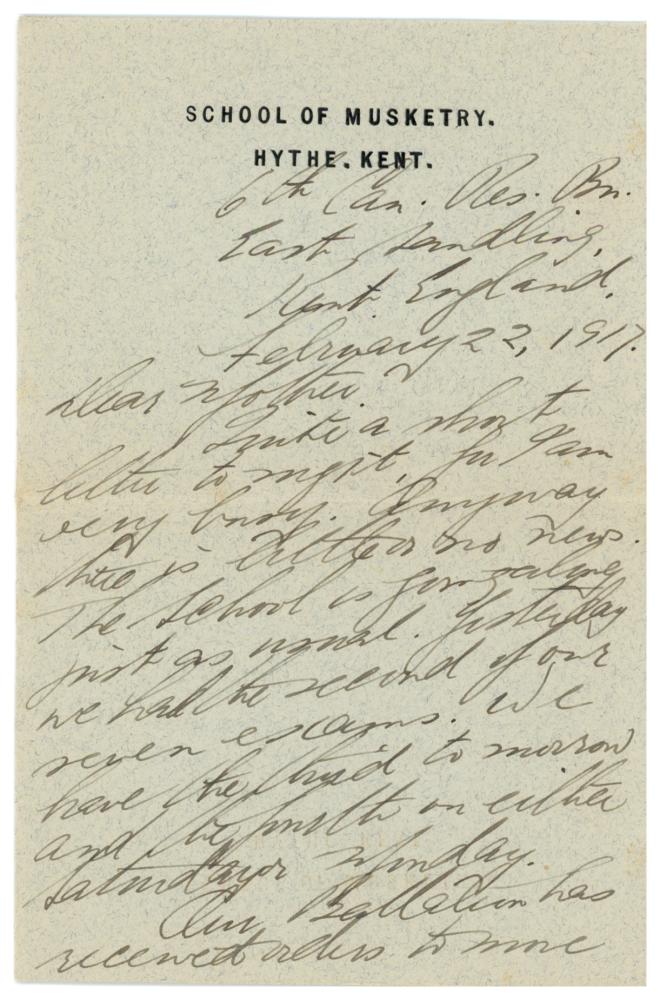 SCHOOL OF MUSKETRY.
HYTHE. KENT.
6th Can. Res. Bn.
East Sandling,
Kent. England.
February 22, 1917.
Dear Mother.
Quite a short
letter to night, for I am
very busy. Anyway
there is little or no news.
The School is going along
just as usual. Yesterday
we had the second of our
seven exams. We
have the third to morrow
and the fourth on either
Saturday or Monday.
Our Battalion has
received orders to move